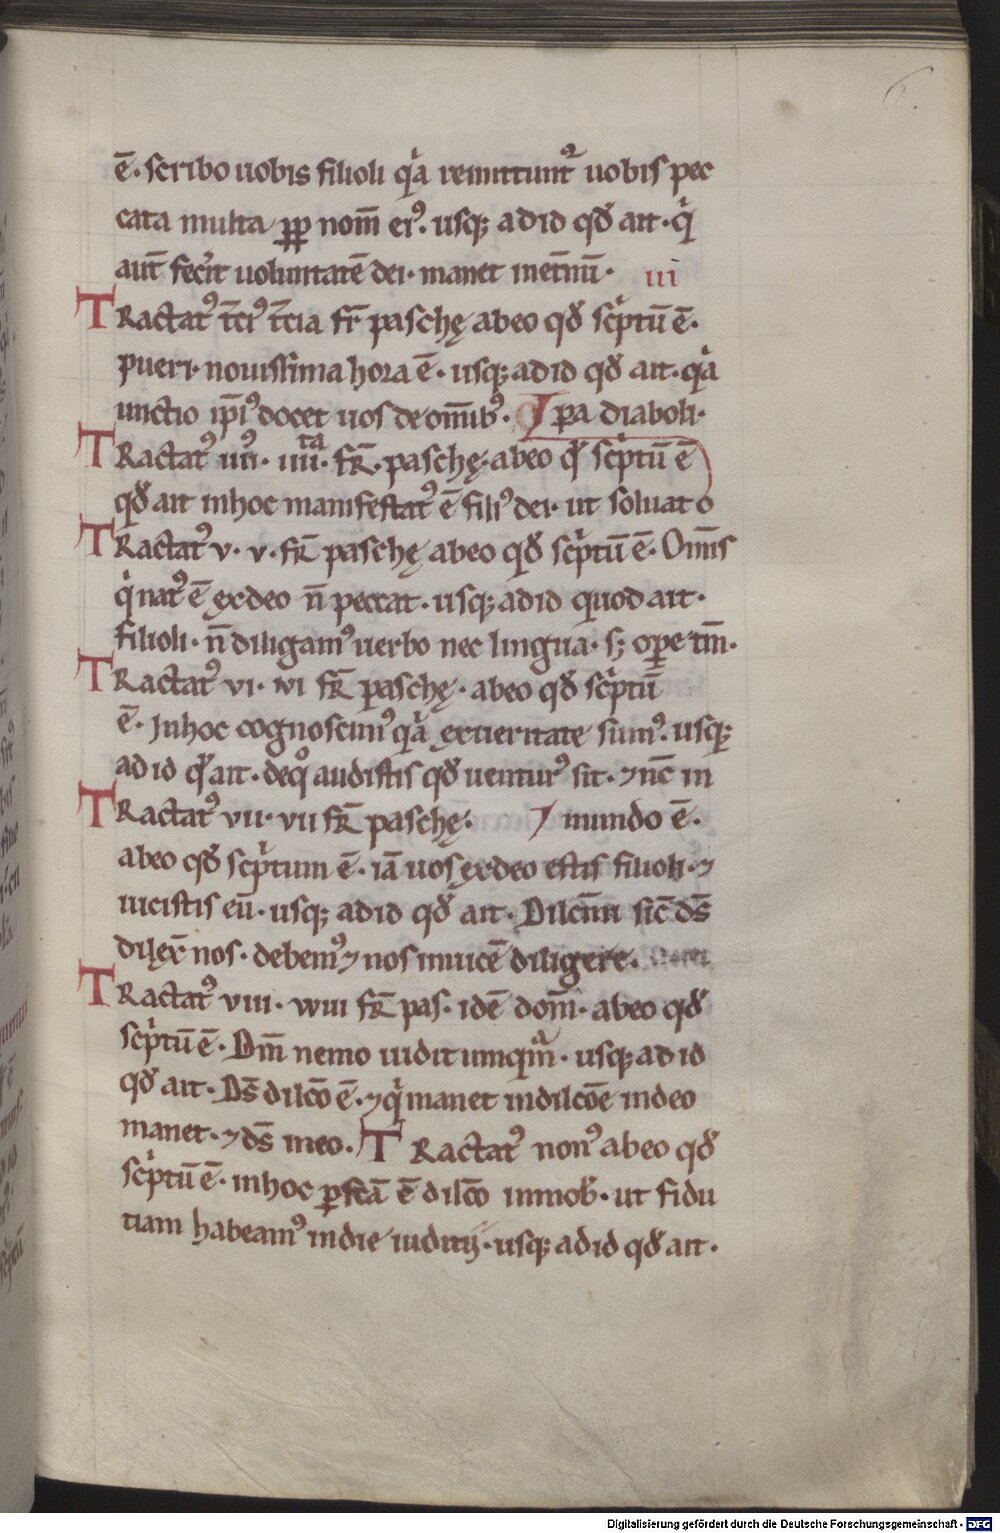 6.
ē. scribo uobis filioli qͥa remittunt᷑ uobis pec
cata multa ꝓp nom̄ ei᷒. usq; ad id qđ ait. qͥ
aut̄ fec̄it uoluntatē dei. manet inet̄nū. iii
Tractat᷒ t̄ci᷒ t̄cia fr̄ paschę abeo qđ scͥptū ē.
pueri. nouissima hora ē. usq; ad id qđ ait. qͥa
unctio ip̄i᷒ docet uos de om̄ib᷒. ꝑa diaboli.
Tractat᷒ iiii᷒. iiii.ta fr̄. paschę. abeo qđ scͥptū ē
qđ ait inhoc manifestat᷒ ē fili᷒ dei. ut soluat o
Tractat᷒ v. v. fr̄ paschę abeo qđ scͥptū ē. Omīs
qͥ nat᷒ ē exdeo n̄ peccat. usq; ad id quod ait.
filioli. n̄ diligam᷒ uerbo nec lingua. s; oꝑe tm̄.
Tractat᷒ vi. vi fr̄ paschę. abeo qđ scͥptū
ē. Inhoc cognoscim᷒ qͥa exueritate sum᷒. usq;
ad id qđ ait. deqͦ audistis qđ uentur᷒ sit. ⁊ nc̄ in
Tractat᷒ vii. vii fr̄ paschę. mundo ē.
abeo qđ scͥptum ē. iā uos exdeo estis filioli. ⁊
uicistis eū. usq; ad id qđ ait. Dilc̄mi sic̄ ds̄
dilex̄ nos. debem᷒ ⁊ nos inuicē diligere.
Tractat᷒ viii. viii fr̄ pas. idē dom̄. abeo qđ
scͥptū ē. Dm̄ nemo uidit umqͣm̄. usq; ad id
qđ ait. Ds̄ dilc̄o ē. ⁊ qͥ manet indilc̄oe indeo
manet. ⁊ ds̄ ineo. Tractat᷒ non᷒ abeo qđ
scͥptū ē. inhoc ꝑfc̄ā ē dilc̄o innob̄. ut fidu
tiam habeam᷒ indie iuditij. usq; ad id qđ ait.
Digitalisierung gefördert durch die Deutsche Forschungsgemeinschaft - DFG